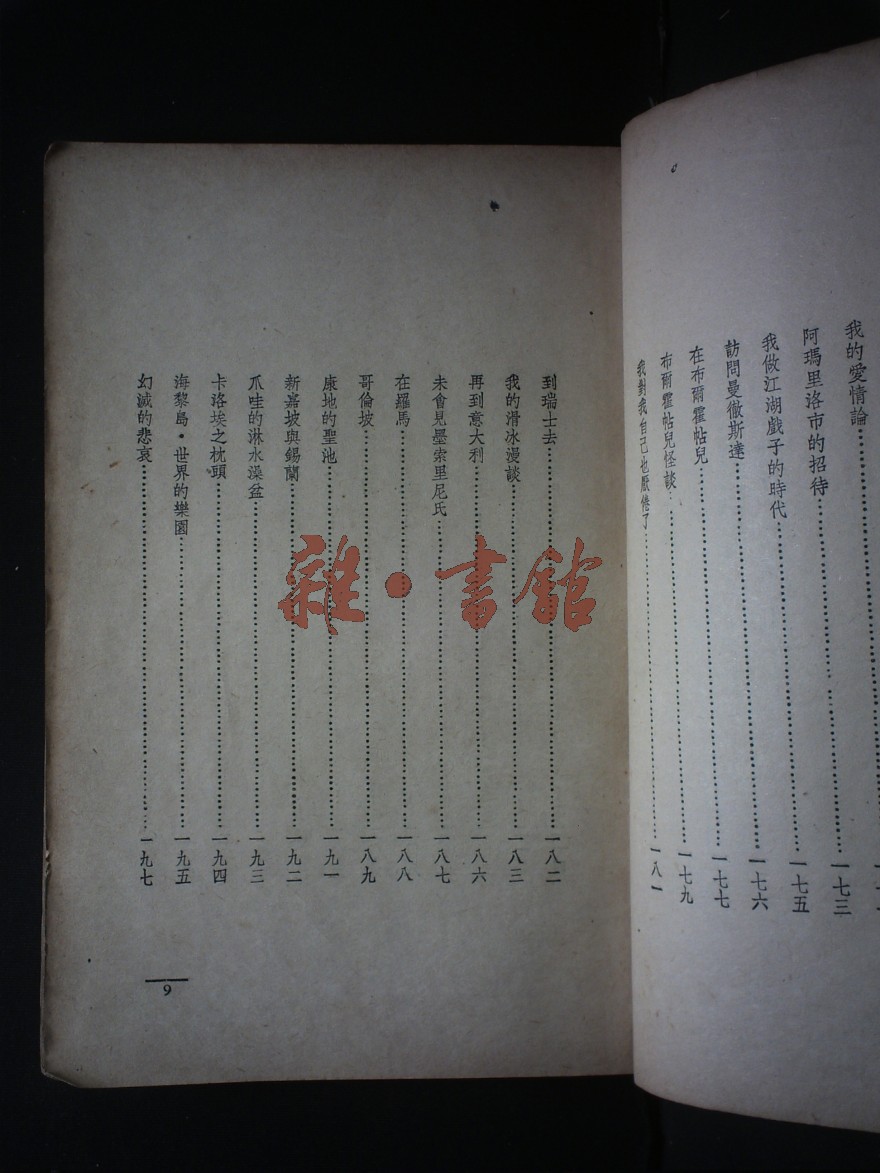 我的愛情論……一七三
阿瑪里洛市的招待……一七五
我做江湖戲子的時代……一七六
訪問曼徹斯達……一七七
在布爾霍帖兒……一七九
布爾霍帖兒怪談……
我對我自己也厭倦了……一八一
到瑞士去……一八二
我的滑冰漫談……一八三
再到意大利……一八六
未會見墨索里尼氏……一八七
在羅馬……一八八
哥倫坡……一八九
康地的聖池……一九一
新嘉坡與錫蘭……一九二
爪哇的淋水澡盆……一九三
卡洛埃之枕頭……一九四
海黎島·世界的樂園……一九五
幻滅的悲哀……一九七
9
雜·書館